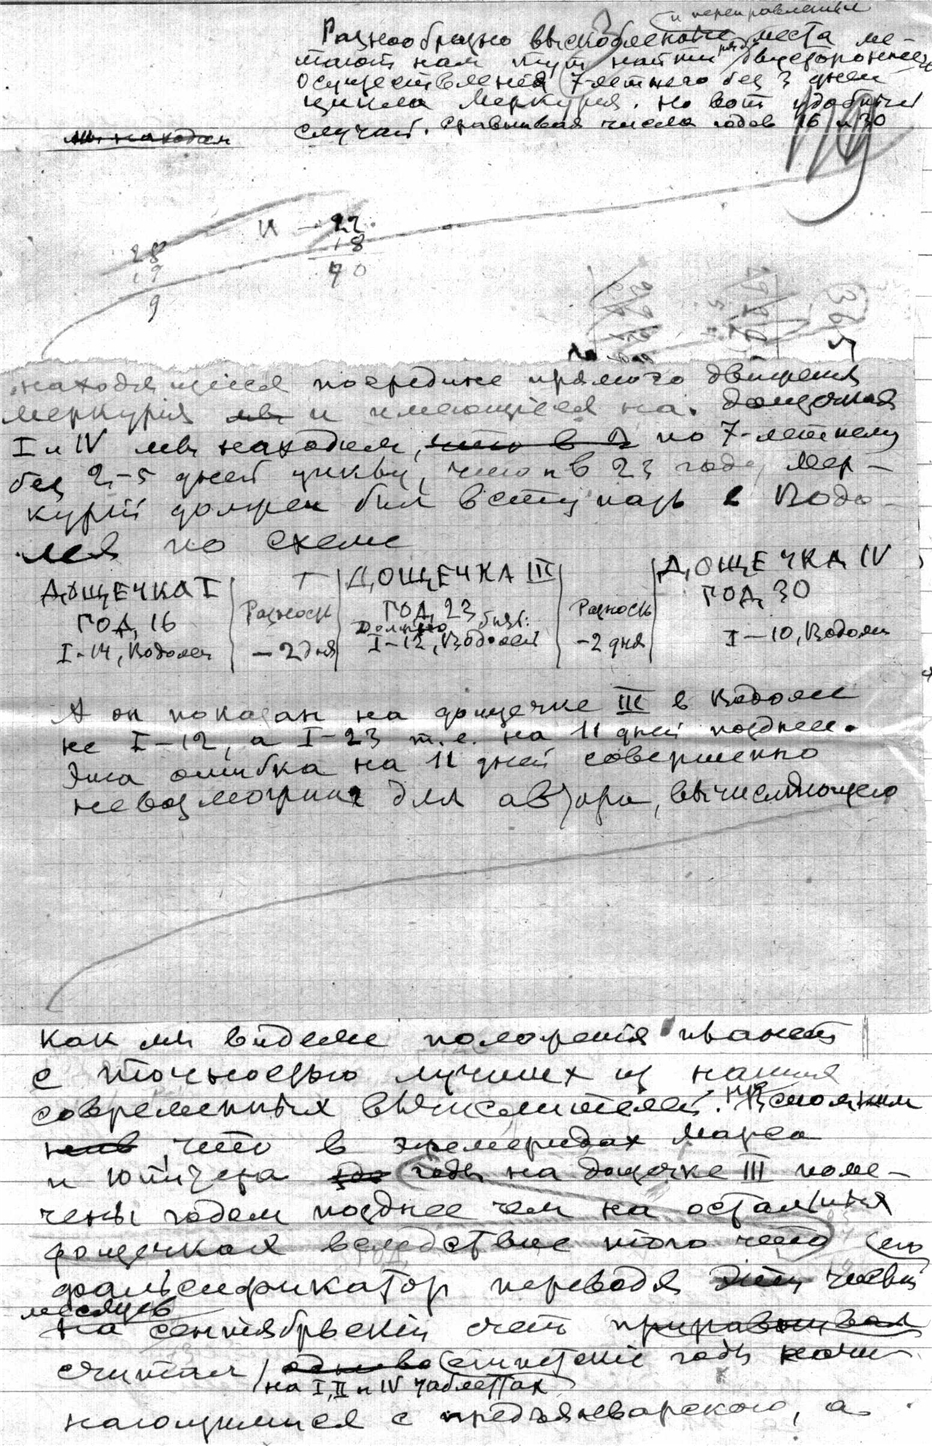 и переправленные
Разнообразно выскобленные места ме-
шают нам тут найти двустороннее
осуществления 7-летнего без 3 дней
цикла Меркурия. Но вот удобный
случай. Сравнивая числа годов 16 и 30
мы находим
и — 22
28 18
19 40
9
365
находящиеся посредине прямого движения
Меркурия мы и имеющиеся на дощечках
I и IV мы находим, что в 2 по 7-летнему
без 2-5 дней циклу, что и в 23 году Мер-
курий должен был вступать в Водо-
лея по схеме
ДОЩЕЧКА I ДОЩЕЧКА III ДОЩЕЧКА IV
ГОД 16 Разность ГОД 23 Разность ГОД 30
Должно быть:
I-14, Водолей —2 дня I-12, Водолей —2 дня I—10, Водолей
А он показан на дощечке III в Водолее
не I-12, а I-23 т.е. на 11 дней позднее.
Эта ошибка на 11 дней совершенно
невозможная для автора, вычисляющего
как мы видели положения планет
с точностью лучших из наших
современных вычислителей. Напомним
нив, что в эфемеридах Марса
и Юпитера годы на дощечке III поме-
чены годом позднее чем на остальных
дощечках вследствие того что (его
фальсификатор переводя числа
месяцев
на сентябрьский счет приравнивал
считал египетские годы начи-
на I, II и IV таблетках
нающимися с предъянварского, а